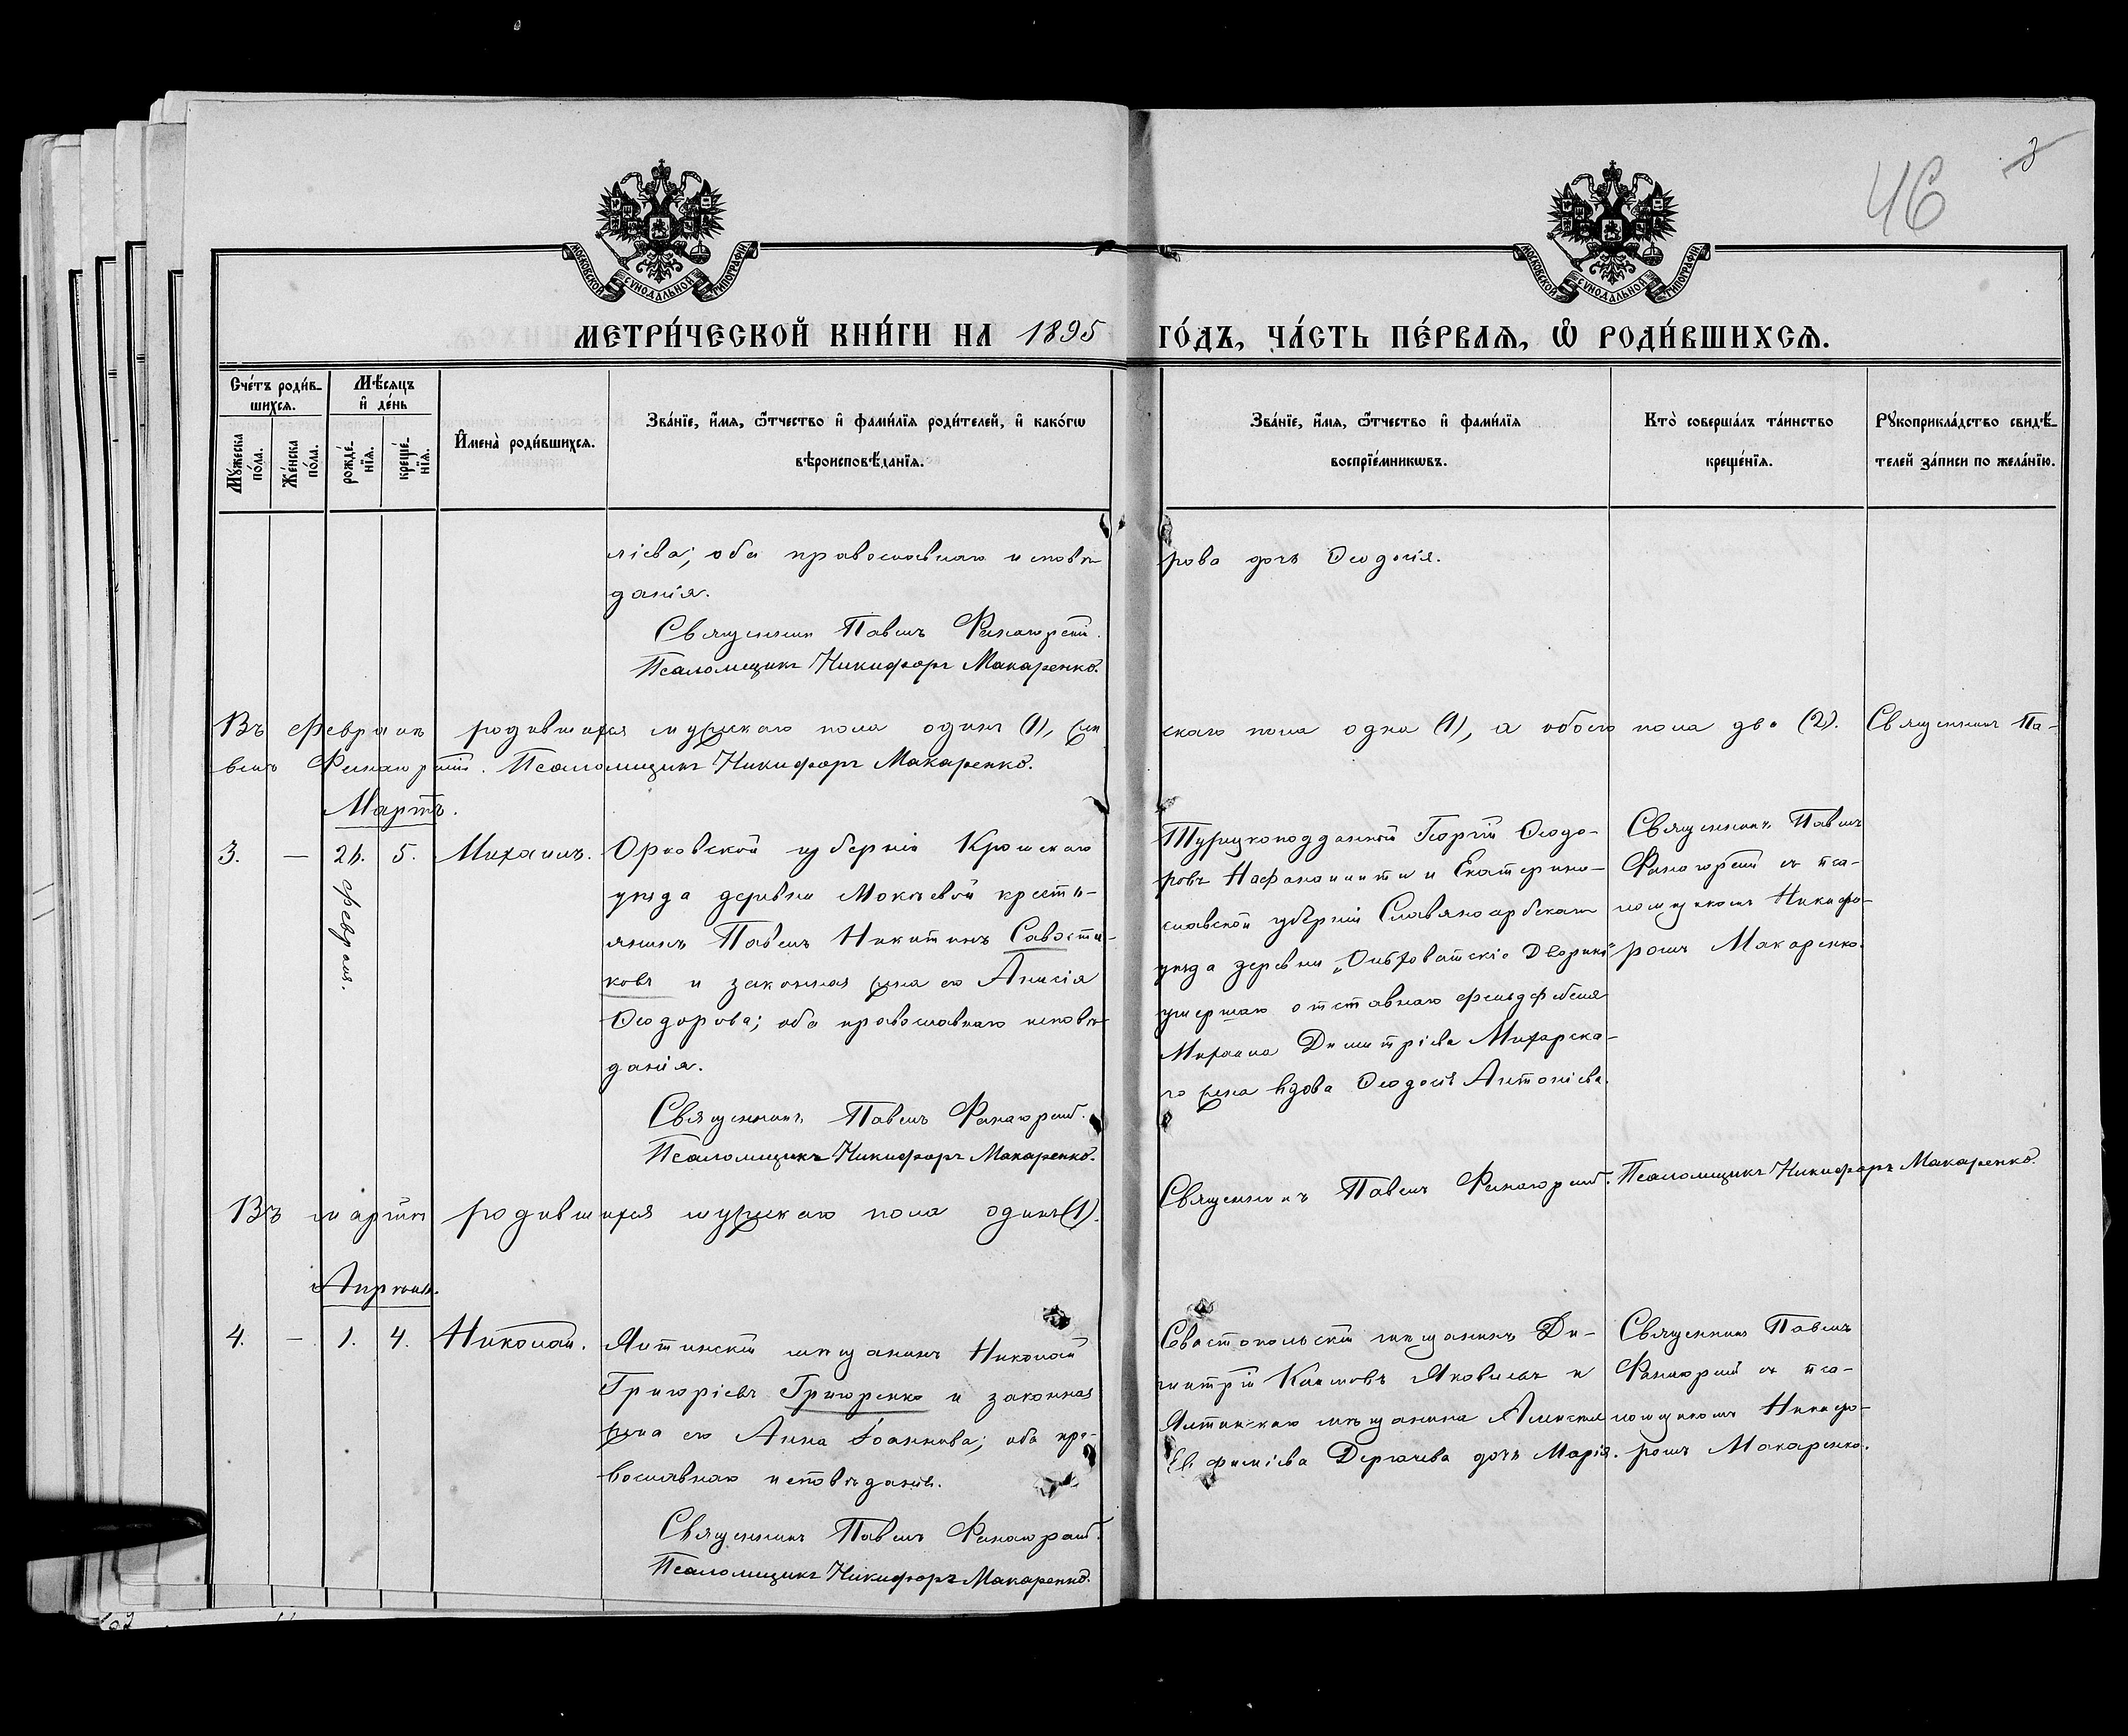 46
3
МОСКОВСКОЙ СѴНОДАЛЬНОЙ ТИПОГРАФІИ
МОСКОВСКОЙ СѴНОДАЛЬНОЙ ТИПОГРАФІИ
МЕТРИ́ЧЕСКОЙ КНИ́ГИ НА 1895 ГО́ДЪ, ЧА́СТЬ ПЕ́РВАѦ, Ѽ РОДИ́ВШИХСѦ.
Сче́тъ роди́в-
шихсѧ.
Мѣ́сяцъ
и҆ де́нь
Мꙋжеска
по́ла.
Же́нска
по́ла.
рожде́-
нїѧ.
креще́-
нїѧ.
И҆мена̀ роди́вшихсѧ.
Зва́нїе, и҆́мѧ, ѻ҆́тчество и҆ фами́лїѧ роди́телей, и҆ како́гѡ
вѣроисповѣ́данїѧ.
Зва́нїе, и҆́мѧ, ѻ҆́тчество и҆ фами́лїѧ
воспрїе́мникѡвъ.
Кто̀ соверша́лъ та́инство
креще́нїѧ.
Рꙋкоприкла́дство свидѣ́-
телей за́писи по жела́нїю.
ліева; оба православнаго исповѣ
данія.
Священникъ Павелъ
Псаломщикъ Никифоръ Макаренко.
рова дочь Ѳеодосія.
Въ Февралѣ родившихся мужскаго пола одинъ (1), жен
скаго пола одна (1), а обоего пола два (2). Священникъ Па-
велъ Псаломщикъ Никифоръ Макаренко.
Мартъ.
3. — 26. 5. Михаилъ.
февраля.
Орловской губерніи Кромскаго
уѣзда деревни Мокѣевой кресть-
янинъ Павелъ Никитинъ Савости-
ковъ и законная жена его Анисія
Ѳеодорова; оба православнаго исповѣ-
данія.
Священникъ Павелъ
Псаломщикъ Никифоръ Макаренко.
Турецкоподданный Георгій Ѳеодо-
ровъ и Екатерино-
славской губерніи Славяносербскаго
уѣзда деревни Дворики"
умершаго отставнаго фельдфебеля
Михаила Димитріева
го жена вдова Ѳеодосія Антоніева.
Священникъ Павелъ
съ пса-
ломщикомъ Никифо-
ромъ Макаренко.
Въ мартѣ родившихся мужскаго пола одинъ (1).
Священникъ Павелъ Псаломщикъ Никифоръ Макаренко.
Апрѣль.
4. — 1. 4. Николай.
Ялтинскій мѣщанинъ Николай
Григорьевъ Григоренко и законная
жена его Анна Іоаннова; оба пра-
вославнаго исповѣданія.
Священникъ Павелъ
Псаломщикъ Никифоръ Макаренко.
Севастопольскій мѣщанинъ Ди-
митрій Яковлевъ и
Ялтинскаго мѣщанина Алексея
Евфиміева Дергачева дочь Марія.
Священникъ Павелъ
съ пса-
ломщикомъ Никифо-
ромъ Макаренко.